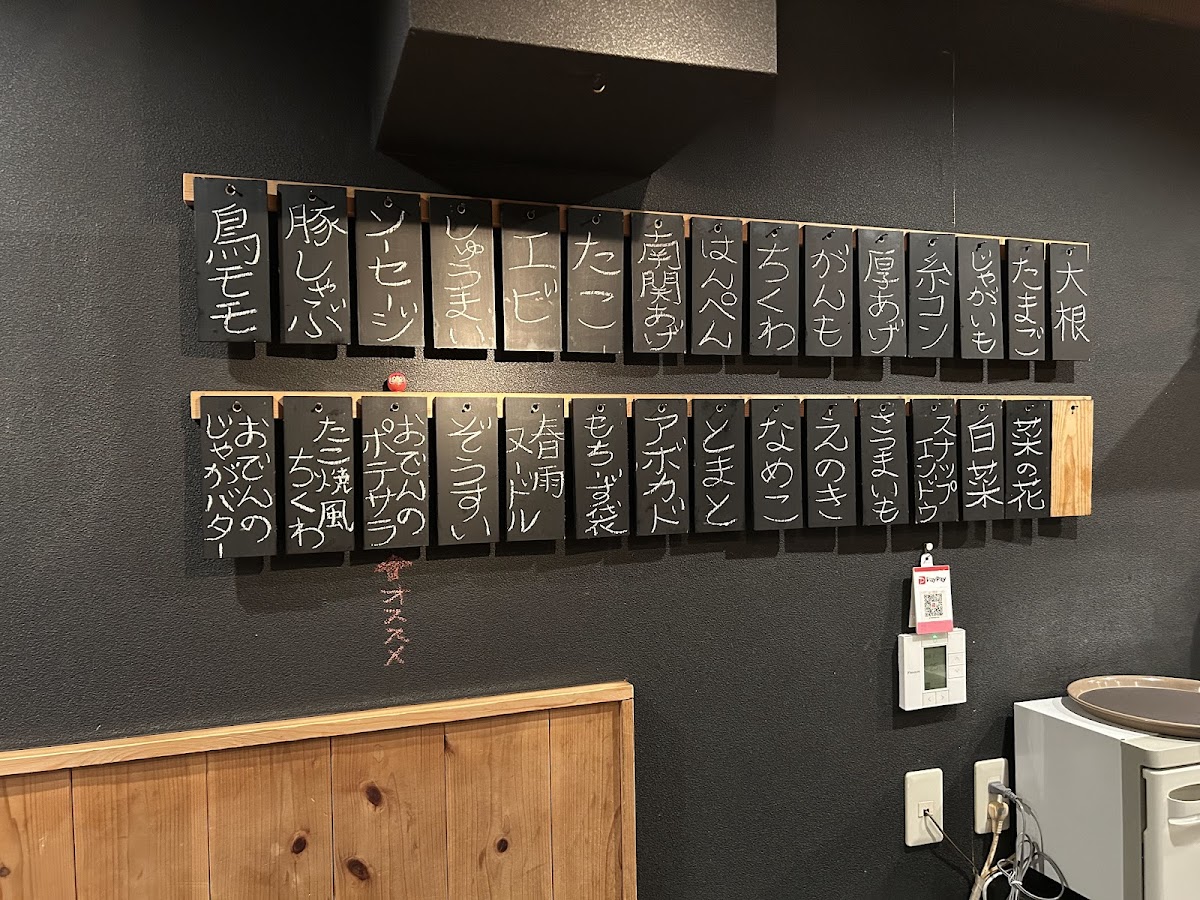 大根
たまご
じゃがいも
糸コン
厚あげ
がんも
ちくわ
はんぺん
南関あげ
たこ
エビ
しゅうまい
ソーセージ
豚しゃぶ
鳥モモ
菜の花
白菜
スナップ
エンドウ
さつまいも
えのき
なめこ
とまと
アボカド
もちぃず袋
春雨
ヌードル
ぞうすい
おでんの
ポテサラ
たこ焼風
ちくわ
おでんの
じゃがバター
オススメ
PayPay